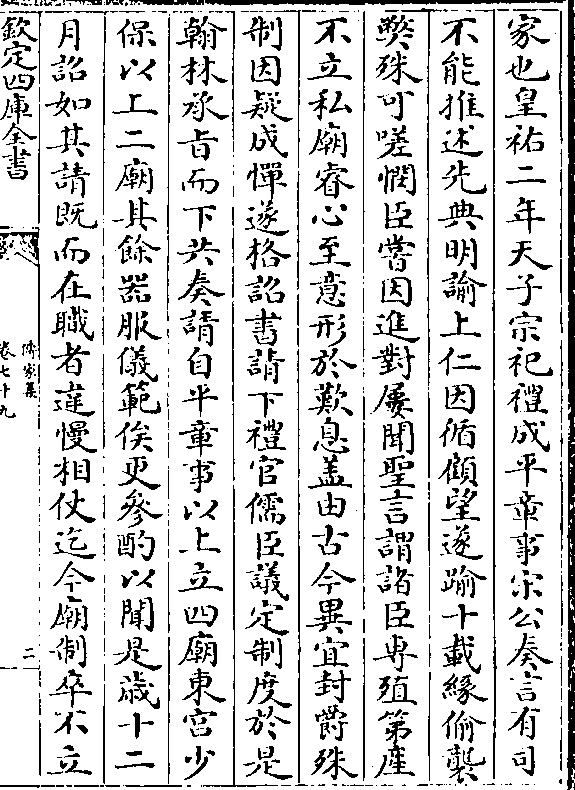 家也皇祐二年天子宗祀禮成平章事宋公奏言有司
不能推述先典明諭上仁因循顧望遂踰十載緣偷襲
弊殊可嗟憫臣嘗因進對屢聞聖言謂諸臣専殖第産
不立私廟睿心至意形於歎息蓋由古今異宜封爵殊
制因疑成憚遂格詔書請下禮官儒臣議定制度於是
翰林承㫖而下共奏請自平章事以上立四廟東宮少
保以上二廟其餘器服儀範俟更參酌以聞是歲十二
月詔如其請既而在職者違慢相仗迄今廟制卒不立
欽定四庫全書
傳家集
卷七十九
二